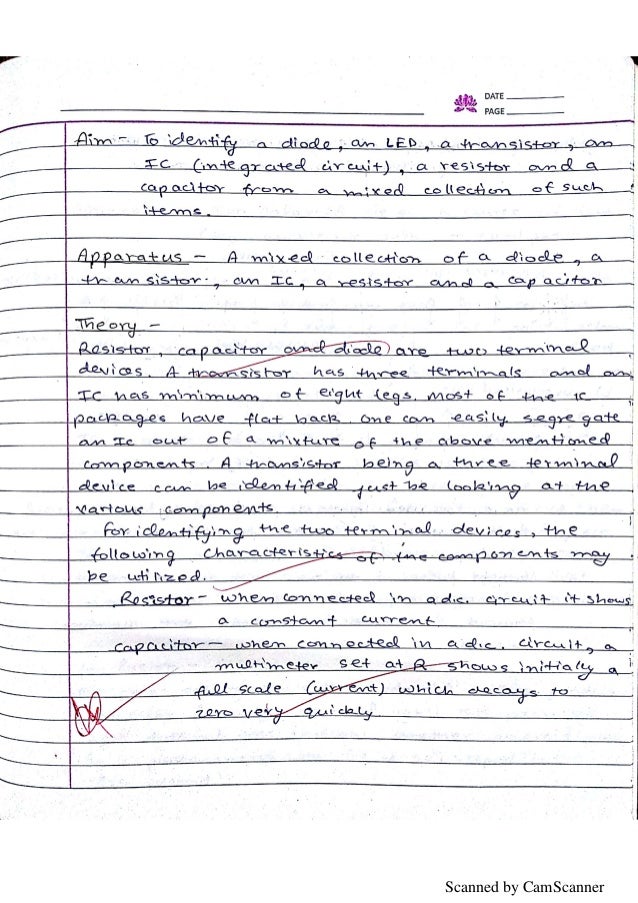 DATE
PAGE
Aim - To identify a diode, an LED, a transistor, an
IC (integrated circuit), a resistor and a
capacitor from a mixed collection of such
items.
Apparatus - A mixed collection of a diode, a
transistor, an IC, a resistor and a capacitor
Theory -
Resistor, capacitor and diode) are two terminal
devices. A transistor has three terminals and an
IC has minimum of eight legs. most of the IC
packages have flat back one can easily segregate
an Ic out of a mixture of the above mentioned
components. A transistor being a three terminal
device can be identified just be looking at the
various components.
for identifying the two terminal devices, the
following characteristics of the components may
be utilized.
Resistor - when connected in a d.c. circuit it shows
a constant current
capacitor - when connected in a d.c. circuit, a
multimeter set at R shows initially a
full scale (current) which decays to
zero very quickly
Scanned by CamScanner